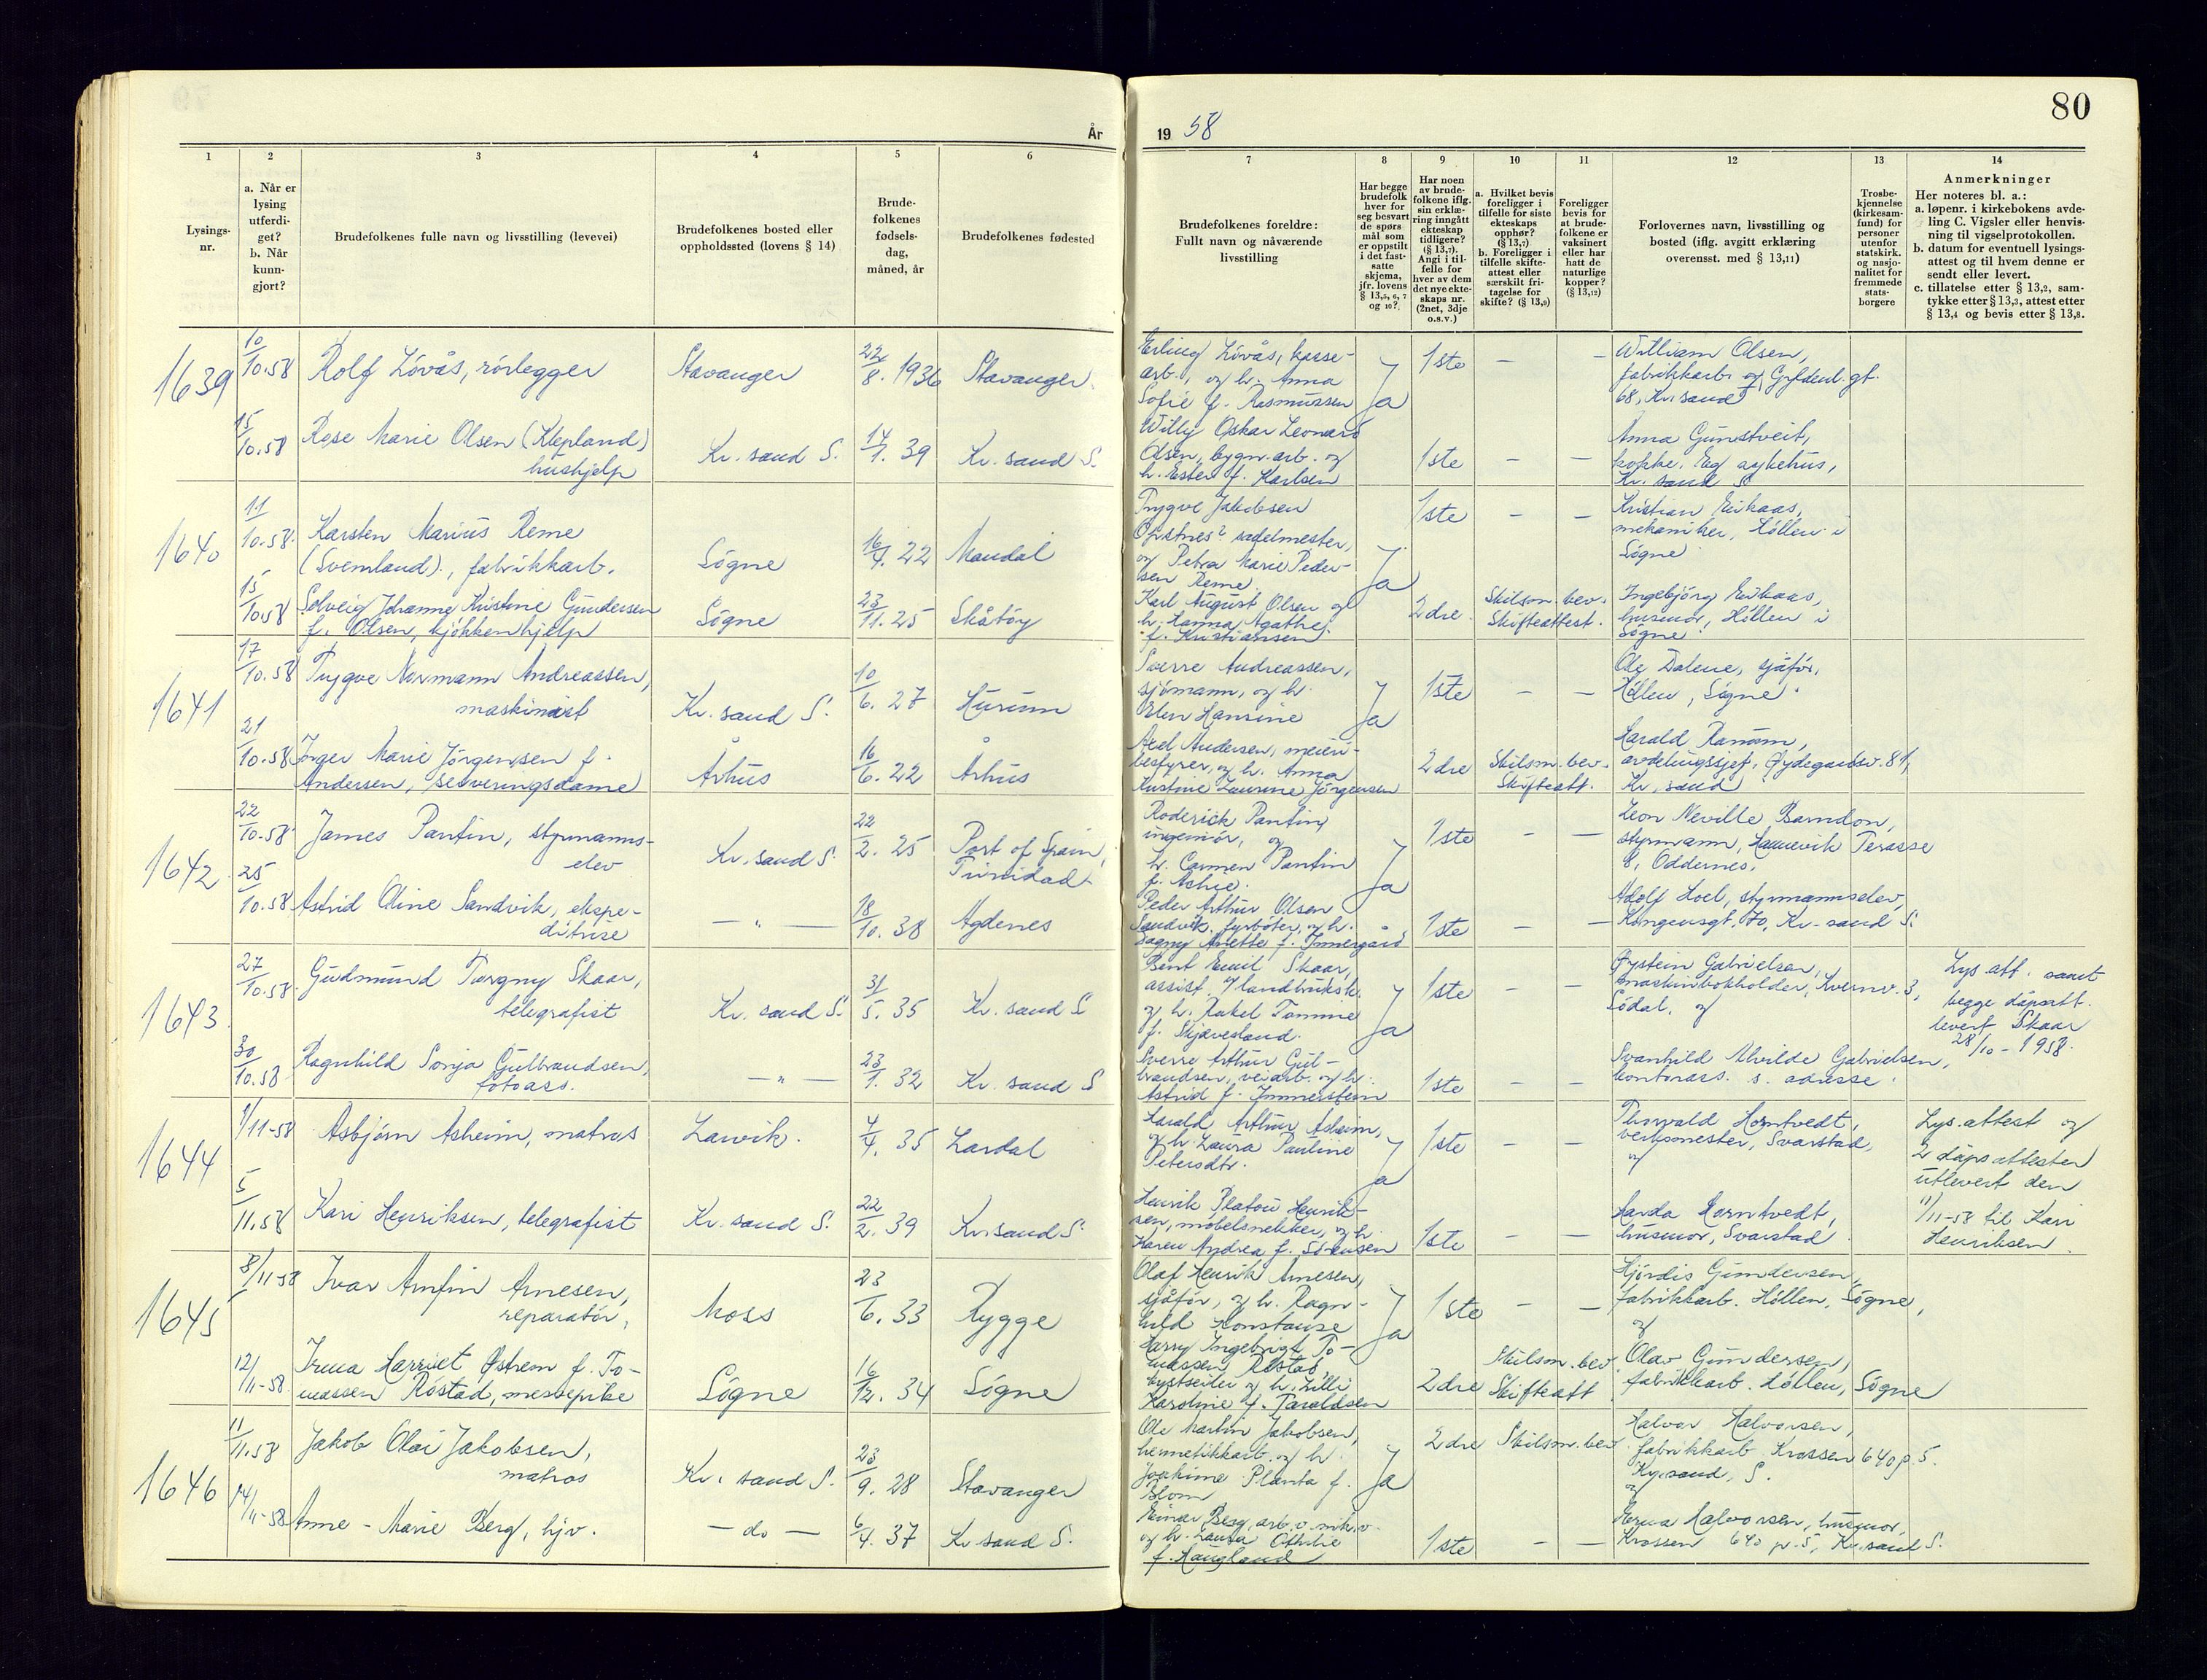 80
År
19 58
1
2
3
4
5
6
7
8
9
10
11
12
13
14
Lysings-
nr.
a. Når er
lysing
utferdi-
get?
b. Når
kunn-
gjort?
Brudefolkenes fulle navn og livsstilling (levevei)
Brudefolkenes bosted eller
oppholdssted (lovens § 14)
Brude-
folkenes
fødsels-
dag,
måned, år
Brudefolkenes fødested
Brudefolkenes foreldre:
Fullt navn og nåværende
livsstilling
Har begge
brudefolk
hver for
seg besvart
de spørs
mål som
er oppstilt
i det fast-
satte
skjema,
jfr. lovens
§ 13,5, 6, 7
og 10?
Har noen
av brude-
folkene iflg.
sin erklæ-
ring inngått
ekteskap
tidligere?
(§ 13,7).
Angi i til-
felle for
hver av dem
det nye ekte-
skaps nr.
(2net, 3dje
o.s.v.)
a. Hvilket bevis
foreligger i
tilfelle for siste
ekteskaps
opphør?
(§ 13,7)
b. Foreligger i
tilfelle skifte-
attest eller
særskilt fri-
tagelse for
skifte? (§ 13,9)
Foreligger
bevis for
at brude-
folkene er
vaksinert
eller har
hatt de
naturlige
kopper?
(§ 13,12)
Forlovernes navn, livsstilling og
bosted (iflg. avgitt erklæring
overensst. med § 13,11)
Trosbe-
kjennelse
(kirkesam-
fund) for
personer
utenfor
statskirk.
og nasjo-
nalitet for
fremmede
stats-
borgere
Anmerkninger
Her noteres bl. a.:
a. løpenr. i kirkebokens avde-
ling C. Vigsler eller henvis-
ning til vigselprotokollen.
b. datum for eventuell lysings-
attest og til hvem denne er
sendt eller levert.
c. tillatelse etter § 13,2, sam-
tykke etter § 13,3, attest etter
§ 13,4 og bevis etter § 13,8.
1639
10/10.58
Rolf Lövås, rörlegger
Stavanger
22/8. 1936
Stavanger.
Erling Lövås, kasse-
arb., og h. Anna
Sofie f. Rasmussen
Ja
1ste
—
—
William Olsen,
fabrikkarb. og Gyldenl. gt.
68, Kr. sand
15/10.58
Rose Marie Olsen (Klepland)
hushjelp
Kr. sand S.
14/1. 39
Kr. sand S.
Willy Oskar Leonard
Olsen, bygn. arb. og
h. Ester f. Karlsen
1ste
—
—
Anna Gunstveit,
kokke. Eg sykehus,
Kr. sand S
1640
11/10.58.
Karsten Marius Reme
(Svemland)., fabrikkarb.
Sögne
16/4. 22
Mandal
Trygve Jakobsen
sadelmester,
og Petra Marie Peder-
sen Reme.
Ja
1ste
—
—
Kristian Eikaas,
mekaniker, Höllen i
Sögne
15/10.58
Solveig Johanne Kristine Gundersen
f. Olsen, kjökkenhjelp
Sögne
23/11. 25
Skåtöy
Karl August Olsen og
h. Hanna Agathe
f. Kristiansen.
2dre
Skilsm. bev.
Skifteattest.
Ingebjörg Eikaas,
husmor, Höllen i
Sögne
1641
17/10.58
Trygve Normann Andreassen,
maskinist
Kr. sand S.
10/6. 27
Hurum
Sverre Andreassen,
sjömann, og h.
Elen Hansine
Ja
1ste
—
—
Ole Dalene, sjåför,
Höllen, Sögne
21/10.58
Inger Marie Jörgensen f.
Andersen, serveringsdame
Århus
16/6. 22
Århus
Axel Andersen, meieri-
bestyrer, og h. Anna
Kristine Laurine Jörgensen
2dre
Skilsm. bev.
Skifteatt.
Harald Ramm,
avdelingssjef, Øydegardsv. 81,
Kr. sand
1642
22/10.58
James Pantin, styrmanns-
elev
Kr. sand S.
22/2. 25
Port of Spain,
Trinidad
Roderick Pantin,
ingeniör, og
h. Carmen Pantin
f. Achie.
Ja
1ste
—
—
Leon Neville Barndon,
styrmann, Hannevik Terasse
8, Oddernes.
25/10.58
Astrid Oline Sandvik, ekspe-
ditrise
— " —
18/10. 38
Agdenes
Peder Arthur Olsen
Sandvik, fyrböter, og h.
Dagny Anette f. Innergård
1ste
—
—
Adolf Hoel, styrmannselev,
Kongensgt. 70, Kr. sand S.
1643
27/10.58.
Gudmund Torgny Skaar,
telegrafist
Kr. sand S.
31/5. 35
Kr. sand S
Bent Emil Skaar,
assist. v/ landbruksk.
og h. Rakel Tomine
f. Skjævesland.
Ja
1ste
—
—
Øystein Gabrielsen,
maskinbokholder, Kvernv. 3,
Södal, og
Lys. att. samt
begge dåpsatt.
levert Skaar
28/10 - 1958.
30/10.58
Ragnhild Sonja Gulbrandsen,
fotoass.
— " —
23/1. 32
Kr. sand S
Sverre Arthur Gul-
brandsen, veiarb. og h.
Astrid f. Immerstein
1ste
—
—
Svanhild Alvilde Gabrielsen,
kontorass. s. adresse.
1644
1/11-58
Asbjörn Asheim, matros
Larvik.
4/4. 35
Lardal
Harald Arthur Asheim,
og h. Laura Pauline
Petersdtr.
Ja
1ste
—
—
Thorvald Horntvedt,
verksmester, Svarstad,
og
Lys. attest og
2 dåpsattester
utlevert den
11/11-58 til Kari
Henriksen
5/11.58
Kari Henriksen, telegrafist
Kr. sand S.
22/2. 39
Kr. sand S.
Henrik Platou Henrik-
sen, möbelsnekker, og h.
Karen Andrea f. Sörensen
1ste
—
—
Harda Horntvedt,
husmor, Svarstad
1645
8/11-58
Ivar Arnfin Arnesen,
reparatör,
Moss
23/6. 33
Rygge
Olaf Henrik Arnesen,
sjåför, og h. Ragn-
hild Konstanse
Ja
1ste
—
—
Hjördis Gundersen,
fabrikkarb. Höllen, Sögne,
og
12/11-58.
Irma Harriet Østrem f. To-
massen Röstad, messepike
Sögne
16/12. 34
Sögne
Harry Ingebrigt To-
massen Röstad
kystseiler og h. Lilli
Karoline f. Taraldsen
2dre
Skilsm. bev.
Skifteatt
Olav Gundersen,
fabrikkarb. Höllen, Sögne
1646
11/11.58
Jakob Olai Jakobsen,
matros
Kr. sand S.
23/9. 28
Stavanger
Ole Martin Jakobsen,
hermetikkarb. og h.
Joakime Planta f.
Blom
Ja
2dre
Skilsm. bev.
Halvor Halvorsen,
fabrikkarb. Krossen 640 p. 5.
Kr. sand, S.
og
14/11-58
Anne-Marie Berg, hjv.
— do —
6/4. 37
Kr sand S.
Einar Berg, arb. v. nik. v.
og h. Laura Othilie
f. Haugland
1ste
—
—
Erna Halvorsen, husmor,
Krossen 640 p. 5, Kr. sand S.